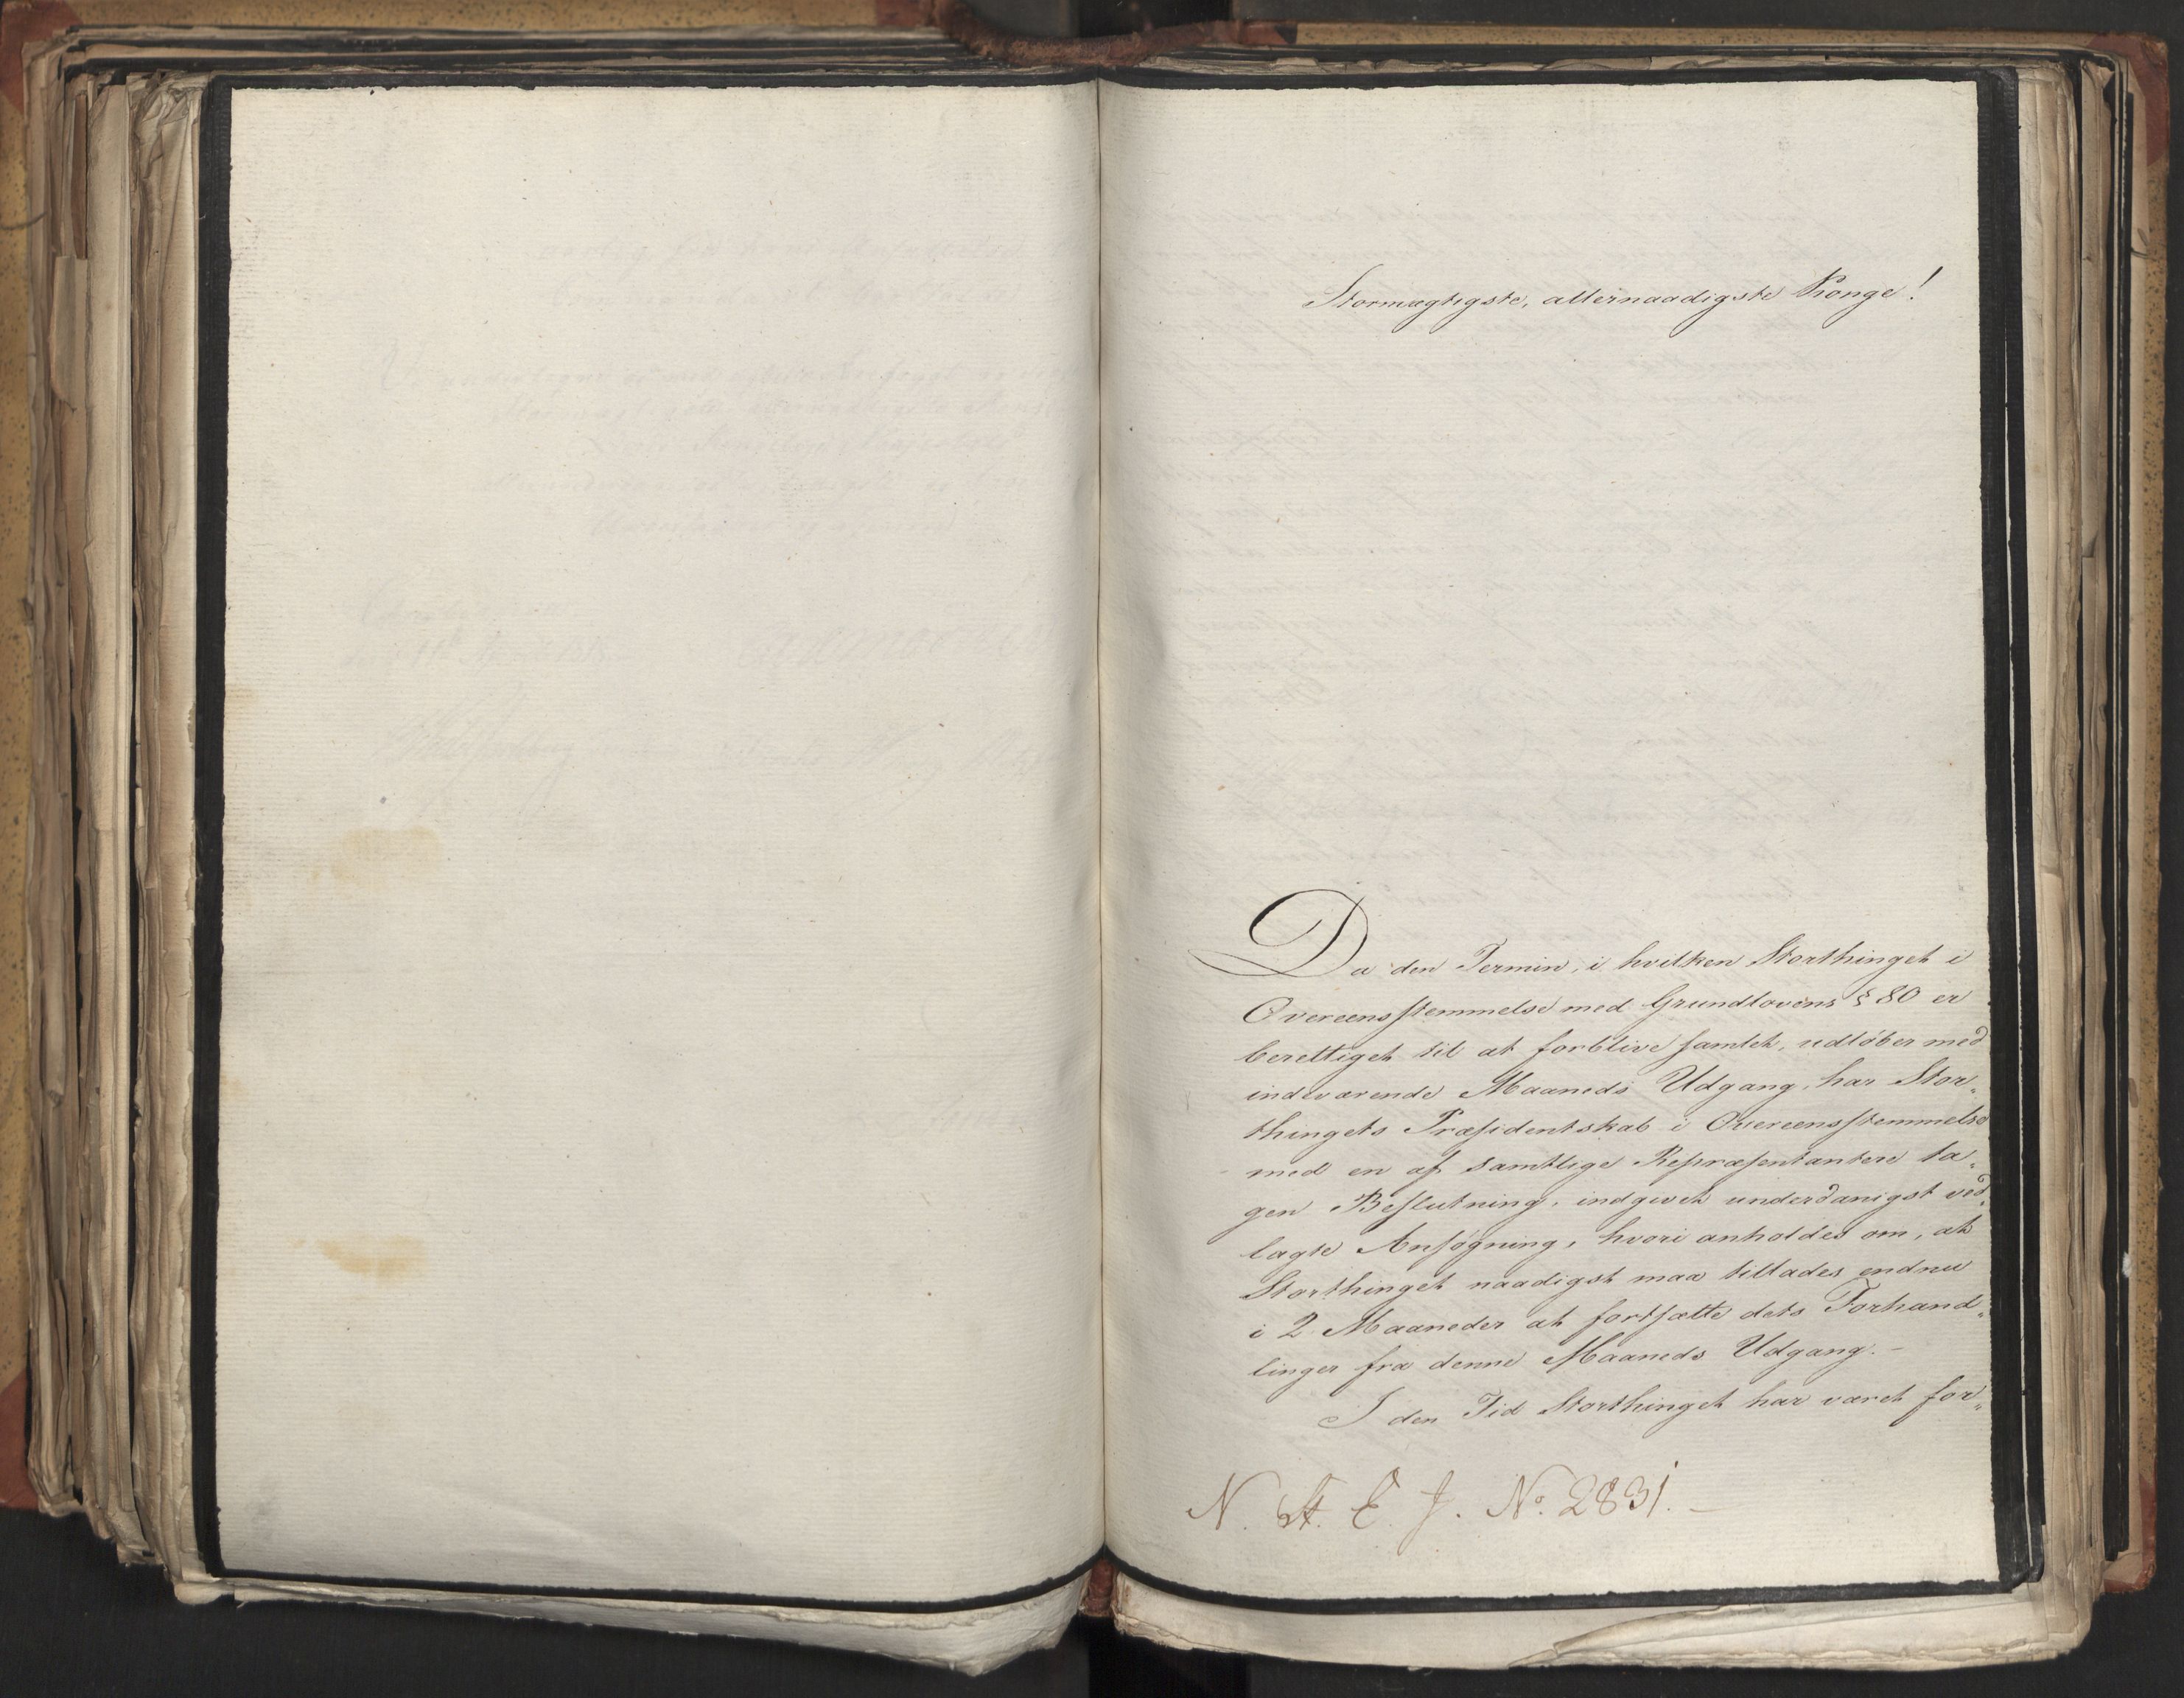 Stormægtigste, allernaadigste Konge!
Da den Termin, i hvilken Storthinget i
Overeensstemmelse med Grundlovens § 80 er
berettiget til at forblive samlet, udløber med
indeværende Maaneds Udgang, har Stor„
thingets Præsidentskab i Overeensstemmelse
med en af samtlige Repræsentantere ta„
gen Beslutning, indgivet underdanigst ved„
lagte Ansøgning, hvori anholdes om, at
Storthinget naadigst maa tillades endnu
i 2 Maaneder at fortsætte dets Forhand„
linger fra denne Maaneds Udgang.–
I den Tid Storthinget har været for„
N. St. E. J. No. 2831.–